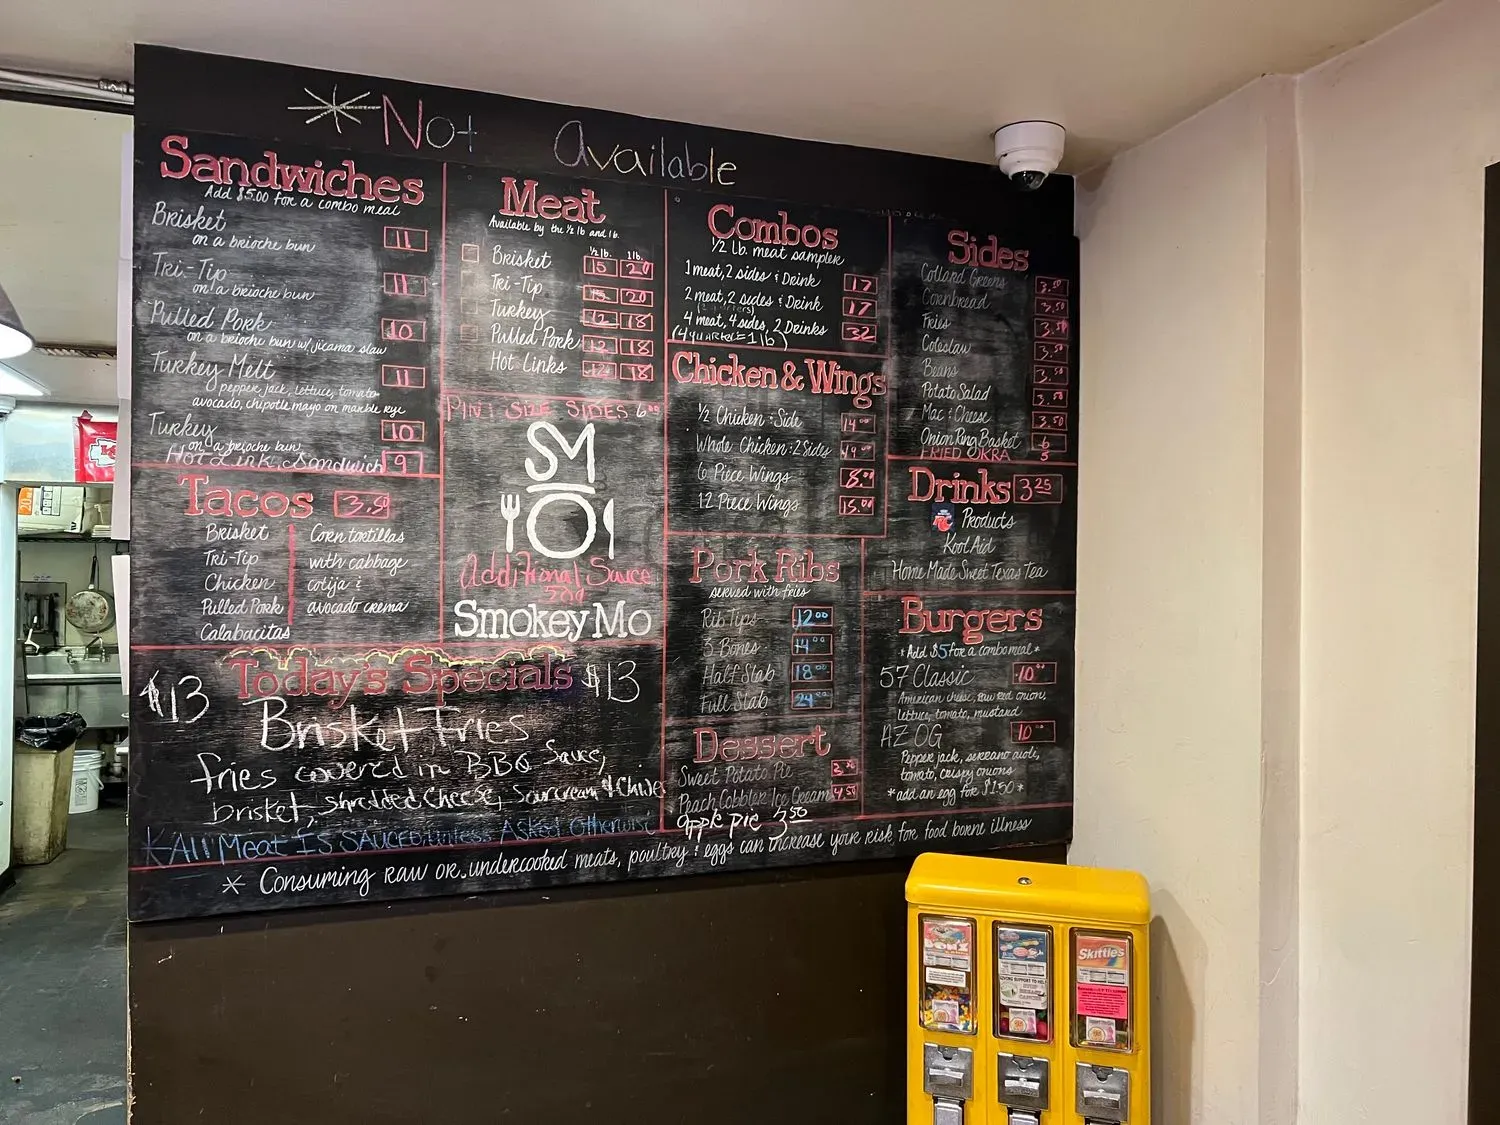 *Not Available
Sandwiches
Add $5.00 for a combo meal
Brisket 11
on a brioche bun
Tri-Tip 11
on a brioche bun
Pulled Pork 10
on a brioche bun w/ jicama slaw
Turkey Melt 11
pepper jack, lettuce, tomato
avocado, chipotle mayo on marble rye
Turkey 10
on a brioche bun
Hot Link Sandwich 9
Tacos 3.50
Brisket
Tri-Tip
Chicken
Pulled Pork
Calabacitas
Corn tortillas
with cabbage
cotija &
avocado crema
Meat
Available by the ½ lb and lb.
½ lb. 1 lb.
Brisket 15 20
Tri-Tip 15 20
Turkey 12 18
Pulled Pork 12 18
Hot Links 12 18
PINT SIZE SIDES 6.00
SM
Additional Sauce
SmokeyMo
Combos
½ lb. meat sampler
1 meat, 2 sides & Drink 17
2 meat, 2 sides & Drink 17
4 meat, 4 sides, 2 Drinks 32
(4 quarters = 1 lb)
Chicken & Wings
½ Chicken & Side 14.00
Whole Chicken & 2 Sides
6 Piece Wings 8.00
12 Piece Wings 15.00
Pork Ribs
served with fries
Rib Tips 12.00
3 Bones 14.00
Half Slab 18.00
Full Slab
Dessert
Sweet Potato Pie
Peach Cobbler Ice Cream 4.50
apple pie 3.50
Sides
Collard Greens 3.50
Cornbread 3.50
Fries 3.50
Coleslaw 3.50
Beans 3.50
Potato Salad 3.50
Mac & Cheese 3.50
Onion Ring Basket 6
FRIED OKRA 5
Drinks 3.25
RC Products
Kool Aid
Home Made Sweet Texas Tea
Burgers
*Add $5 for a combo meal*
57 Classic 10.00
American cheese, raw red onion,
lettuce, tomato, mustard
AZ OG 10.00
Pepper jack, serrano aioli,
tomato, crispy onions
*add an egg for $1.50*
Today's Specials
$13 $13
Brisket Fries
fries covered in BBQ Sauce,
brisket, shredded Cheese, Sour cream & Chives
All Meat IS SAUCED unless Asked Otherwise
* Consuming raw or undercooked meats, poultry & eggs can increase your risk for food borne illness
Skittles